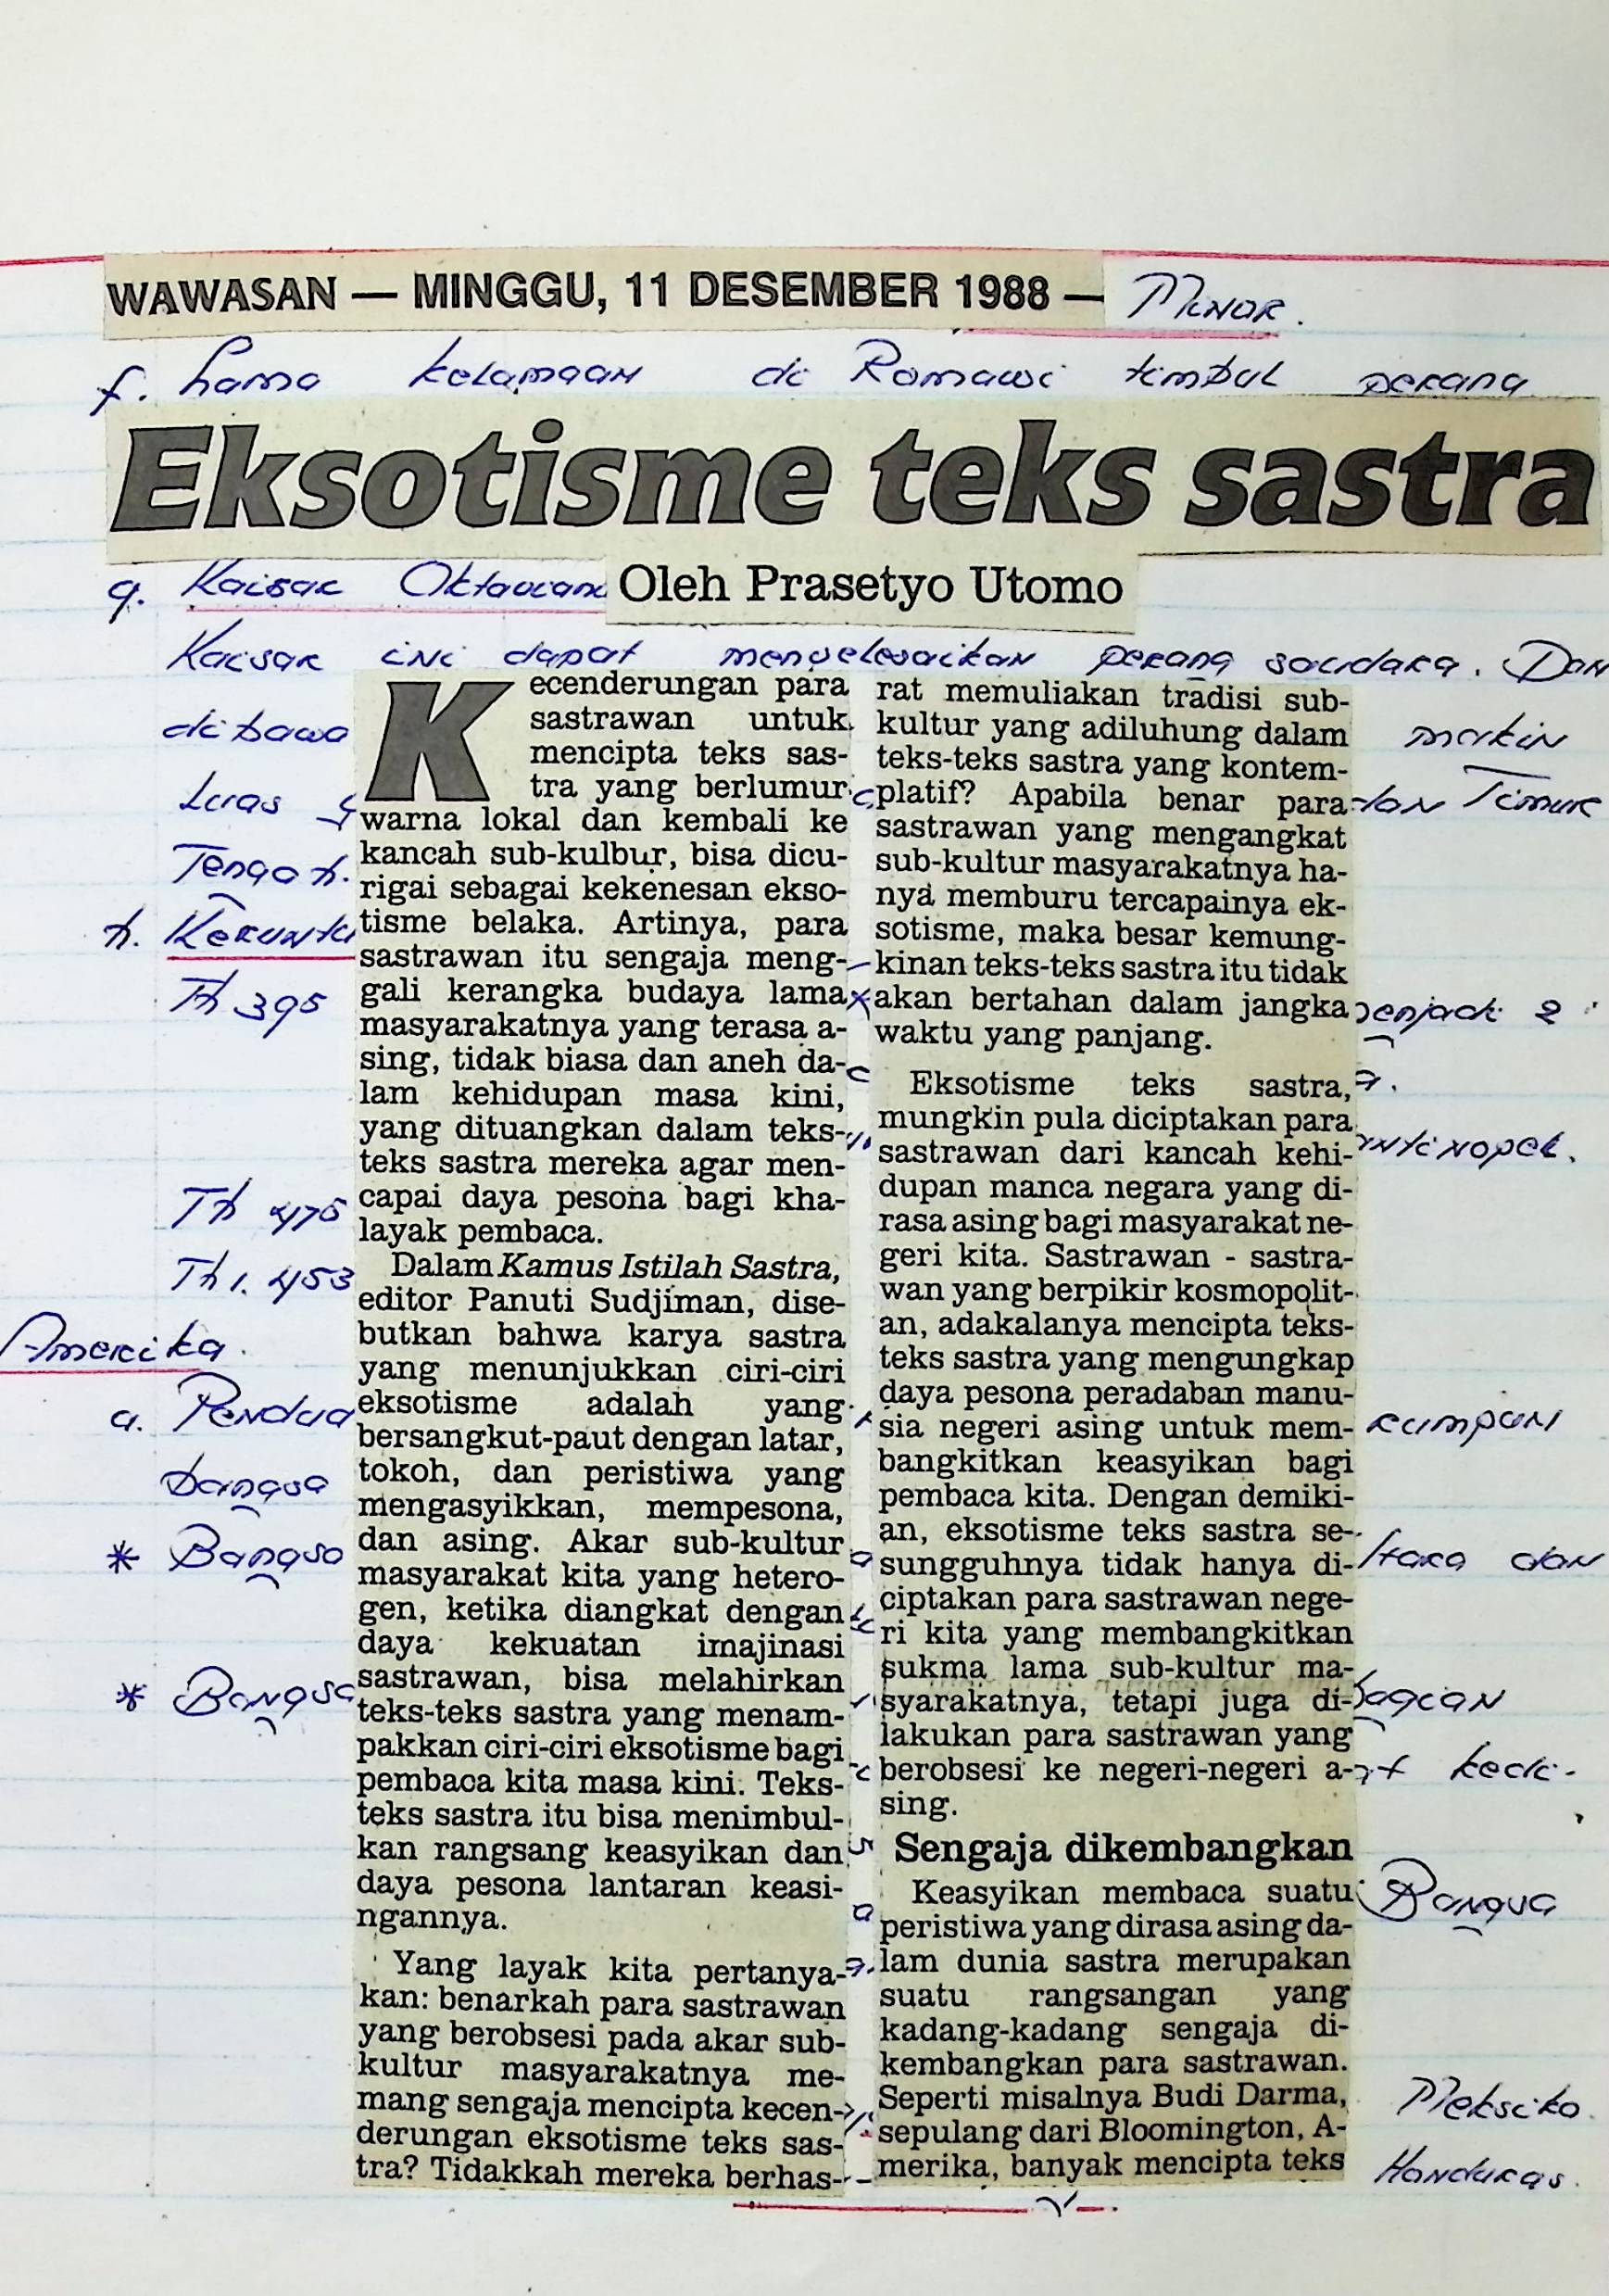 WAWASAN — MINGGU, 11 DESEMBER 1988 —
Minor.
f. Lama kelamaan di Romawi timbul perang
Eksotisme teks sastra
g. Kaisar Oktavian
Oleh Prasetyo Utomo
Kaisar ini dapat menyelesaikan perang saudara. Dan
dibawa
makin
Luas
dan Timur
Tengah.
h. Keruntu
Th 395
menjadi 2
Th 475
Th 1.453
Amerika.
a. Pendud
bangsa
* Bangsa
dan
* Bangsa
bagian
Bangsa
Meksiko
Honduras.
Kecenderungan para
sastrawan untuk
mencipta teks sas-
tra yang berlumur
warna lokal dan kembali ke
kancah sub-kulbur, bisa dicu-
rigai sebagai kekenesan ekso-
tisme belaka. Artinya, para
sastrawan itu sengaja meng-
gali kerangka budaya lama
masyarakatnya yang terasa a-
sing, tidak biasa dan aneh da-
lam kehidupan masa kini,
yang dituangkan dalam teks-
teks sastra mereka agar men-
capai daya pesona bagi kha-
layak pembaca.
Dalam Kamus Istilah Sastra,
editor Panuti Sudjiman, dise-
butkan bahwa karya sastra
yang menunjukkan ciri-ciri
eksotisme adalah yang
bersangkut-paut dengan latar,
tokoh, dan peristiwa yang
mengasyikkan, mempesona,
dan asing. Akar sub-kultur
masyarakat kita yang hetero-
gen, ketika diangkat dengan
daya kekuatan imajinasi
sastrawan, bisa melahirkan
teks-teks sastra yang menam-
pakkan ciri-ciri eksotisme bagi
pembaca kita masa kini. Teks-
teks sastra itu bisa menimbul-
kan rangsang keasyikan dan
daya pesona lantaran keasi-
ngannya.
Yang layak kita pertanya-
kan: benarkah para sastrawan
yang berobsesi pada akar sub-
kultur masyarakatnya me-
mang sengaja mencipta kecen-
derungan eksotisme teks sas-
tra? Tidakkah mereka berhas-
rat memuliakan tradisi sub-
kultur yang adiluhung dalam
teks-teks sastra yang kontem-
platif? Apabila benar para
sastrawan yang mengangkat
sub-kultur masyarakatnya ha-
nya memburu tercapainya ek-
sotisme, maka besar kemung-
kinan teks-teks sastra itu tidak
akan bertahan dalam jangka
waktu yang panjang.
Eksotisme teks sastra,
mungkin pula diciptakan para
sastrawan dari kancah kehi-
dupan manca negara yang di-
rasa asing bagi masyarakat ne-
geri kita. Sastrawan - sastra-
wan yang berpikir kosmopolit-
an, adakalanya mencipta teks-
teks sastra yang mengungkap
daya pesona peradaban manu-
sia negeri asing untuk mem-
bangkitkan keasyikan bagi
pembaca kita. Dengan demiki-
an, eksotisme teks sastra se-
sungguhnya tidak hanya di-
ciptakan para sastrawan nege-
ri kita yang membangkitkan
sukma lama sub-kultur ma-
syarakatnya, tetapi juga di-
lakukan para sastrawan yang
berobsesi ke negeri-negeri a-
sing.
Sengaja dikembangkan
Keasyikan membaca suatu
peristiwa yang dirasa asing da-
lam dunia sastra merupakan
suatu rangsangan yang
kadang-kadang sengaja di-
kembangkan para sastrawan.
Seperti misalnya Budi Darma,
sepulang dari Bloomington, A-
merika, banyak mencipta teks